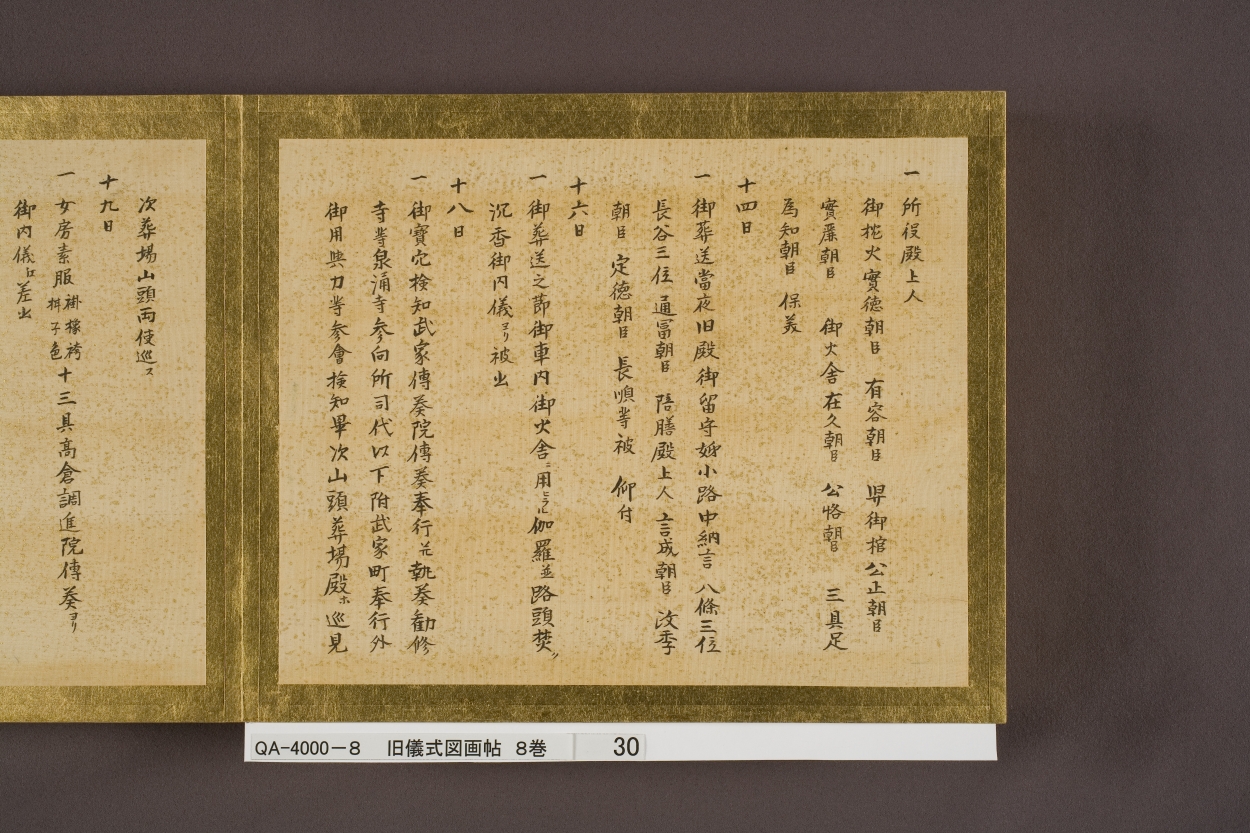 一 所役殿上人
御挓火實徳朝臣 有容朝臣 舁御棺公正朝臣
實麗朝臣 御火舎在久朝臣 公恪朝臣 三具足
為知朝臣 保美
十四日
一 御葬送當夜旧殿御留守姉小路中納言 八條三位
長谷三位 通冨朝臣 陪膳殿上人 言成朝臣 改季
朝臣 定徳朝臣 長順等被 仰付
十六日
一 御葬送之節御車内御火舎ニ用ヒラル伽羅並路頭焚ク
沉香御内儀ヨリ被出
十八日
一 御寳穴検知武家傳奏院傳奏奉行元執奏勧修
寺等泉涌寺参向所司代以下附武家町奉行外
御用與力等参會検知畢次山頭葬場殿ホ巡見
次葬場山頭両使巡ス
十九日
一 女房素服褂檬袴柑子色十三具髙倉調進院傳奏ヨリ
御内儀口差出
QA-4000-8 旧儀式図画帖 8巻 30